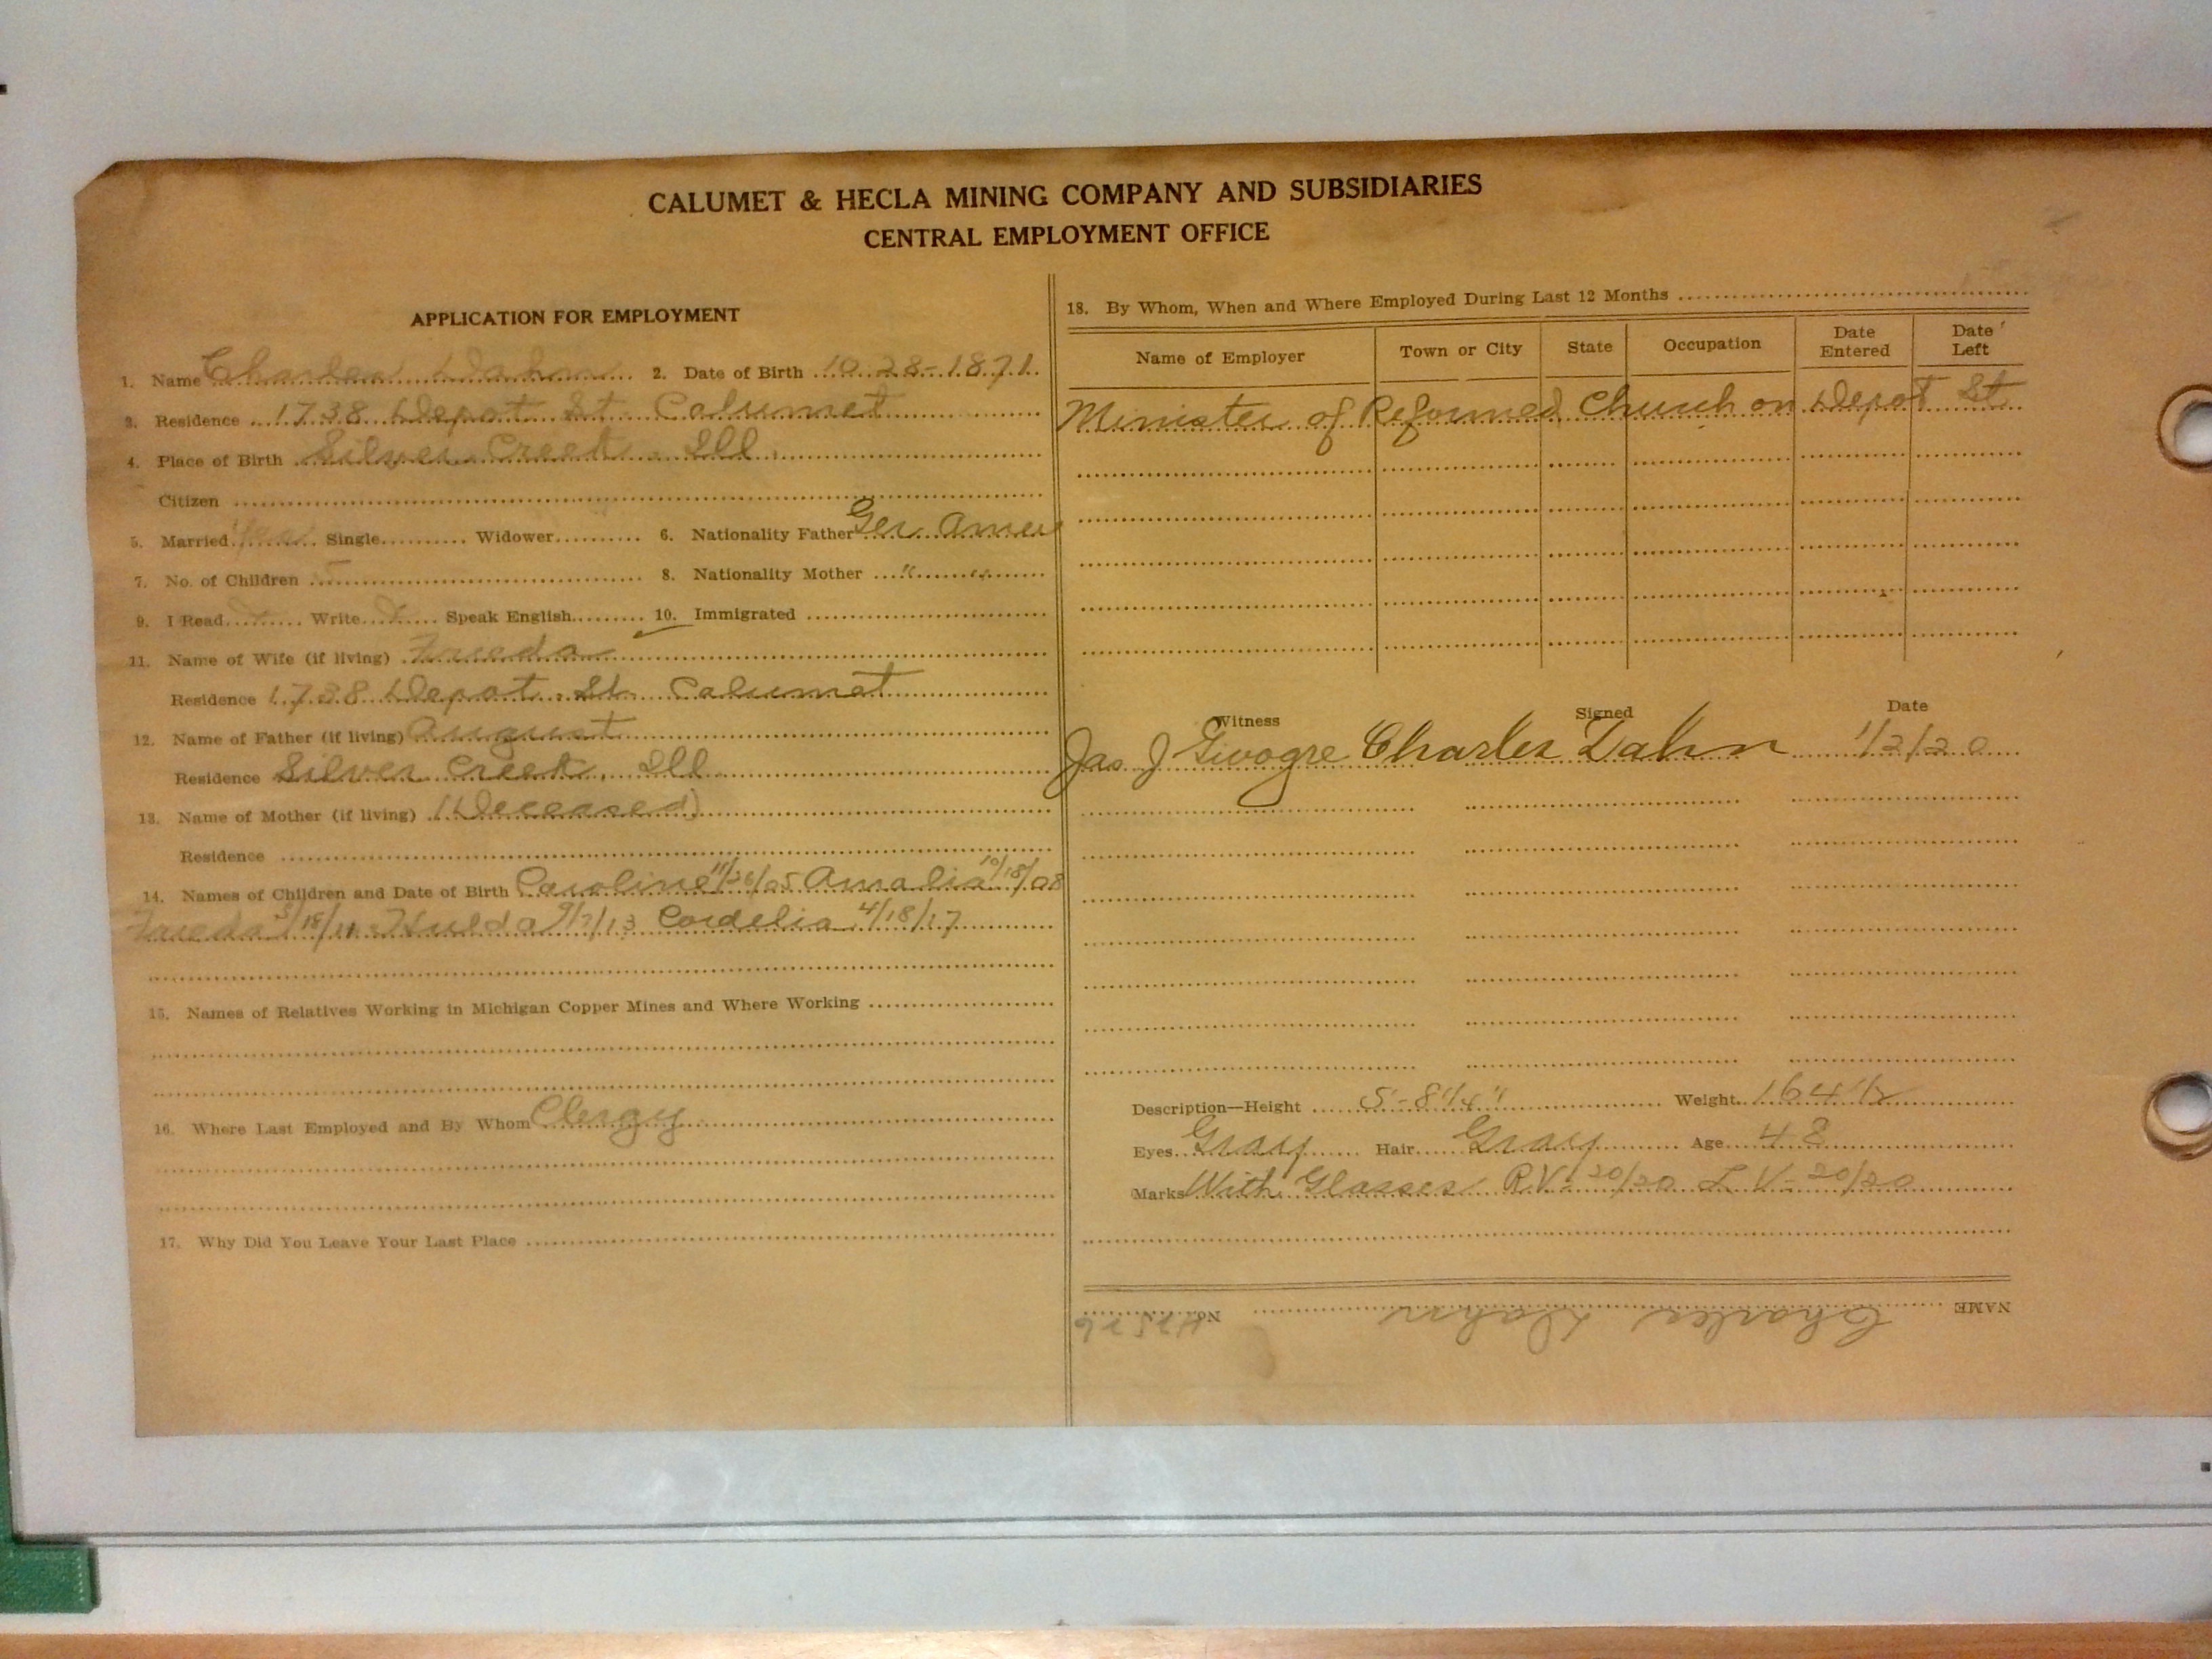 CALUMET & HECLA MINING COMPANY AND SUBSIDIARIES
CENTRAL EMPLOYMENT OFFICE
APPLICATION FOR EMPLOYMENT
1. Name Charles Dahn 2. Date of Birth 10-28-1871
3. Residence 1738 Depot St. Calumet
4. Place of Birth Silver Creek, Ill
Citizen
5. Married Yes Single Widower 6. Nationality Father Ger Amer
7. No. of Children 5 8. Nationality Mother " "
9. I Read Write Speak English 10. Immigrated
11. Name of Wife (if living) Freda
Residence 1738 Depot St. Calumet
12. Name of Father (if living) August
Residence Silver Creek, Ill
13. Name of Mother (if living) (Deceased)
Residence
14. Names of Children and Date of Birth Caroline 11/26/05 Amalia 10/18/08
Freda /18/11 Hulda 9/7/13 Cordelia 4/18/17
15. Names of Relatives Working in Michigan Copper Mines and Where Working
16. Where Last Employed and By Whom Clergy
17. Why Did You Leave Your Last Place
18. By Whom, When and Where Employed During Last 12 Months
Name of Employer Town or City State Occupation Date Entered Date Left
Minister of Reformed Church on Depot St
Witness Signed Date
Jas J Givogre Charles Dahn 1/2/20
Description—Height 5-8 1/4" Weight 164 1/2
Eyes Gray Hair Gray Age 48
Marks With Glasses R.V- 20/20 L V- 20/20
NAME Charles Dahn No.